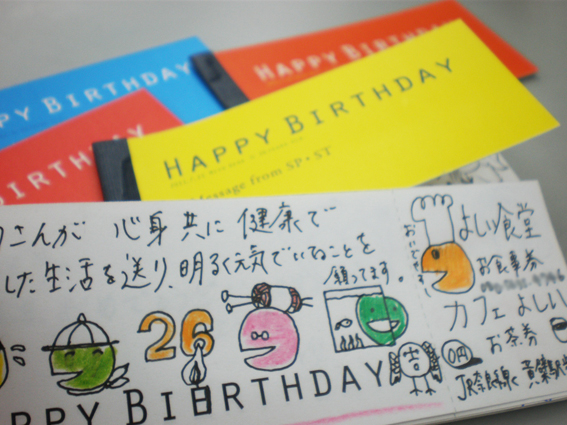 HAPPY BIRTHDAY
HAPPY BIRTHDAY
BIRTHDAY
HAPPY BIRTHDAY
Message from SP・ST
さんが 心身共に 健康で
した生活を送り、明るく元気でいることを
願ってます。
26
PPY BIRTHDAY
吉
おいでやす
よしい食堂
お食事券
カフェよしい
0円
お茶券
JR奈良線 黄檗駅